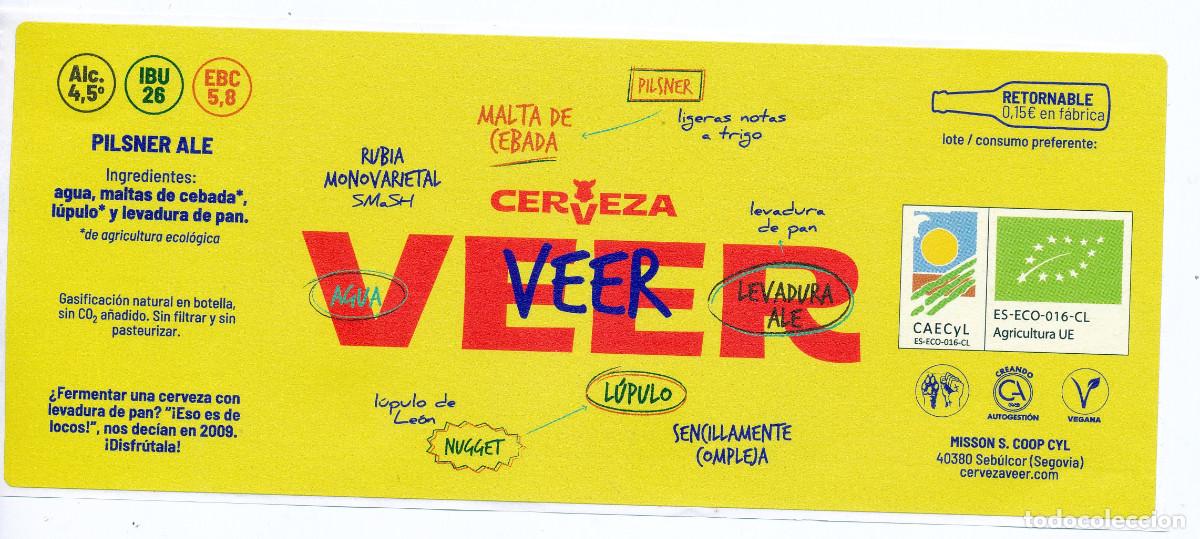 Alc.
4,5º
IBU
26
EBC
5,8
PILSNER ALE
Ingredientes:
agua, maltas de cebada*,
lúpulo* y levadura de pan.
*de agricultura ecológica
Gasificación natural en botella,
sin CO₂ añadido. Sin filtrar y sin
pasteurizar.
¿Fermentar una cerveza con
levadura de pan? "¡Eso es de
locos!", nos decían en 2009.
¡Disfrútala!
PILSNER
MALTA DE
CEBADA
ligeras notas
a trigo
RUBIA
MONOVARIETAL
SMaSH
CERVEZA
VEER
VEER
levadura
de pan
AGUA
LEVADURA
ALE
LÚPULO
lúpulo de
León
NUGGET
SENCILLAMENTE
COMPLEJA
RETORNABLE
0,15€ en fábrica
lote / consumo preferente:
CAECyL
ES-ECO-016-CL
ES-ECO-016-CL
Agricultura UE
CREANDO
CA
AUTOGESTIÓN
V
VEGANA
MISSON S. COOP CYL
40380 Sebúlcor (Segovia)
cervezaveer.com
todocoleccion